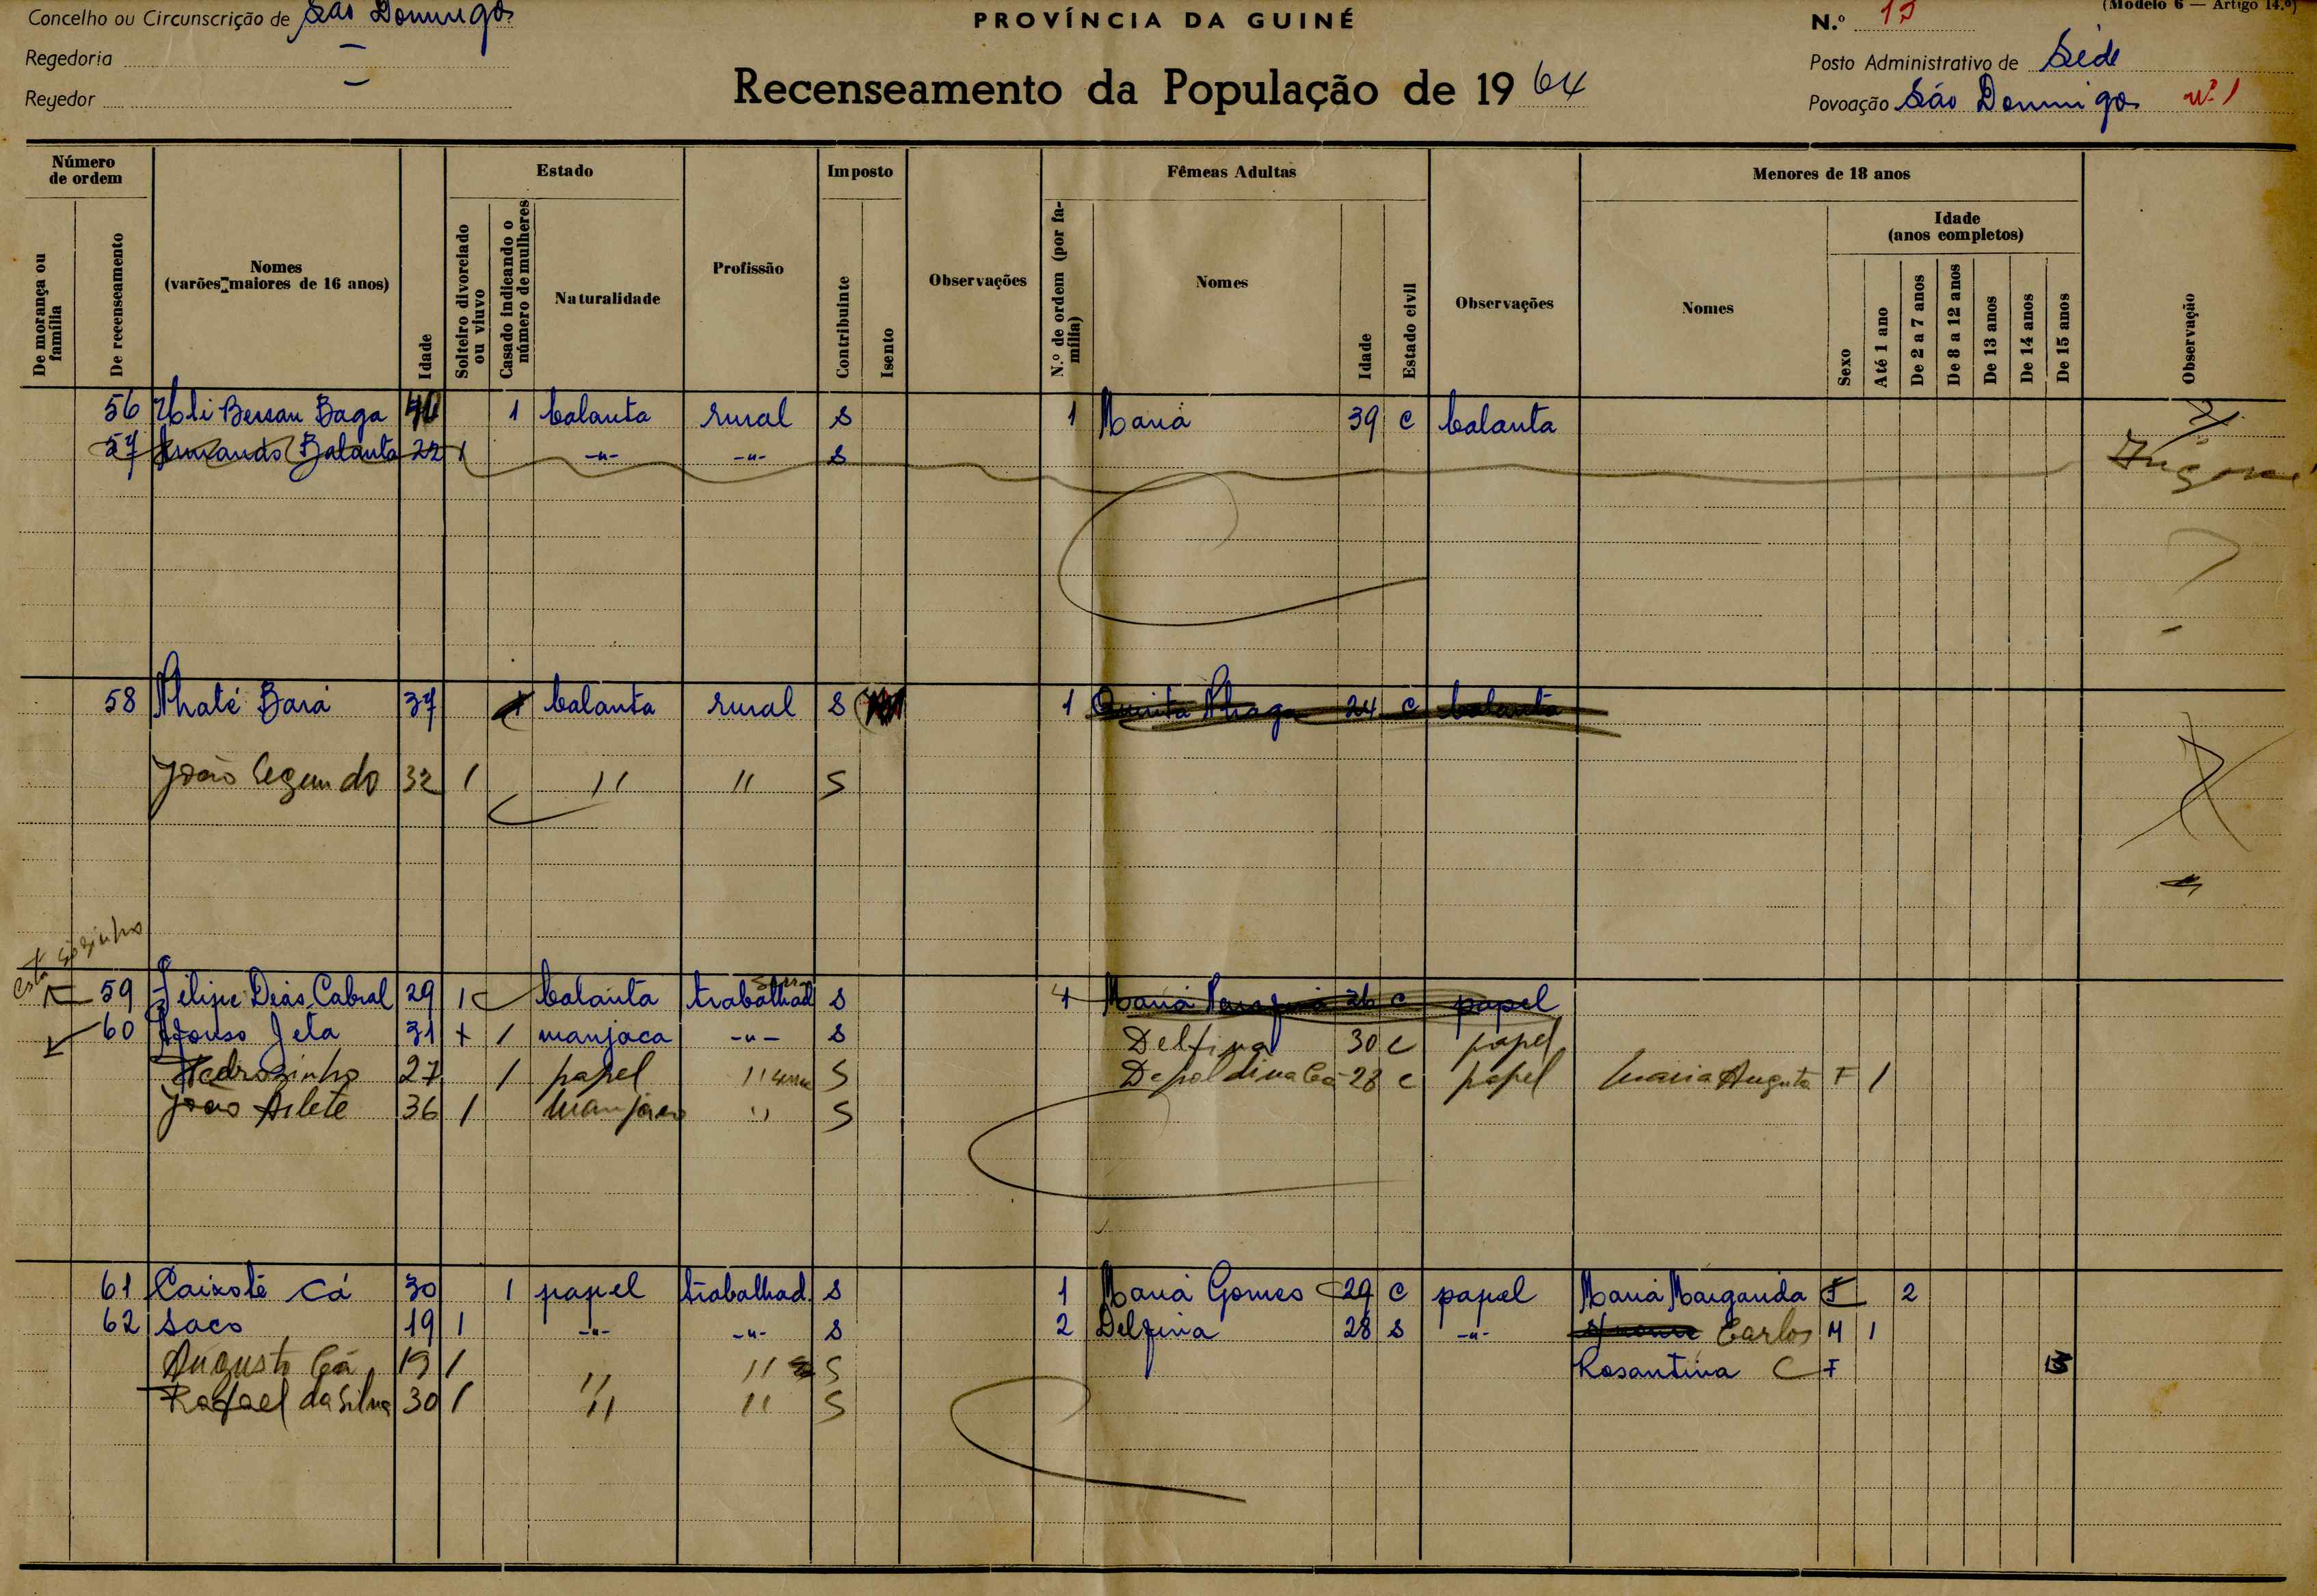 Concelho ou Circunscrição de São Domingos
PROVÍNCIA DA GUINÉ
N.º 17
(Modelo 6 — Artigo 14.º)
Regedoria —
Regedor —
Recenseamento da População de 1964
Posto Administrativo de Séde
Povoação São Domingos nº 1
Número de ordem
De morança ou família
De recenseamento
Nomes (varões maiores de 16 anos)
Idade
Estado
Solteiro divorciado ou viuvo
Casado indicando o número de mulheres
Naturalidade
Profissão
Imposto
Contribuinte
Isento
Observações
N.º de ordem (por família)
Fêmeas Adultas
Nomes
Idade
Estado civil
Observações
Menores de 18 anos
Nomes
Sexo
Idade (anos completos)
Até 1 ano
De 2 a 7 anos
De 8 a 12 anos
De 13 anos
De 14 anos
De 15 anos
Observação
56 Baga 40 1 balanta rural S 1 Maria 39 c balanta
57 Armando Balanta 22 1 -"- -"- S
58 Nhaté Bará 37 balanta rural S 1 Quinta Nhaga 24 c balanta
João Segundo 32 / " " S
está sózinho
59 Filipe Dias Cabral 29 1 balanta trabalhad S 1 Maria 26 c papel
60 Afonso Jeta 31 + / manjaca -"- S Delfina 30 c papel
Pedrozinho 27 / papel " S 28 c papel Maria Augusta F /
João Arlete 36 / manjaco " S
61 Caixote Cá 30 1 papel trabalhad. S 1 Maria Gomes 29 c papel Maria Margarida F 2
62 Saco 19 1 -"- -"- S 2 Delfina 28 S -"- Carlos M 1
Augusto Cá 19 / " " S Rosantina C F 15
Rafael da Silva 30 / " " S